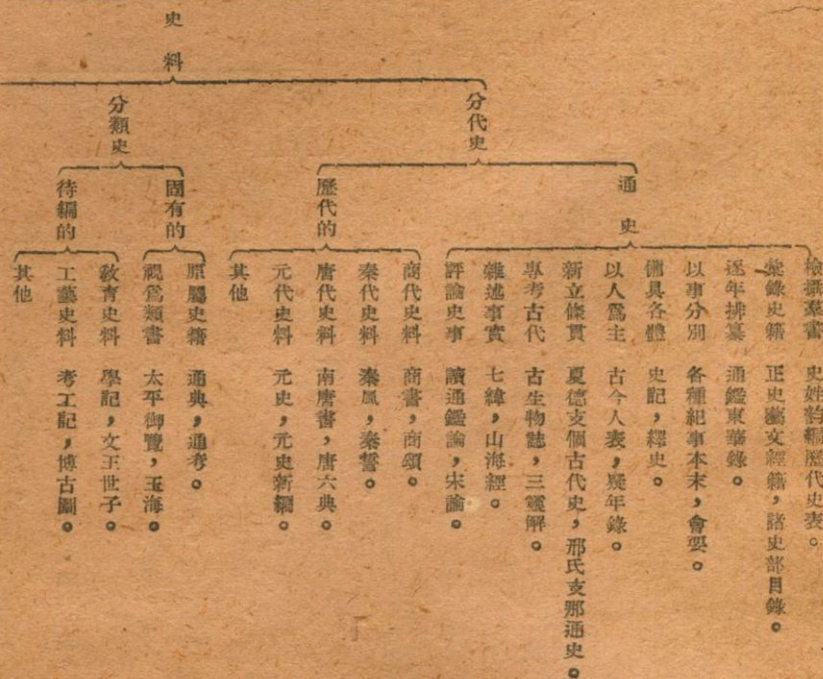 史料
分代史
通史
檢攝羣書 史姓韵編歷代史表。
彙錄史籍 正史藝文經籍，諸史部目錄。
逐年排纂 通鑑東華錄。
以事分別 各種紀事本末，會要。
備具各體 史記，繹史。
以人爲主 古今人表，疑年錄。
新立條貫 夏德支個古代史，邢氏支那通史。
專考古代 古生物誌，三靈解。
雜述事實 七緯，山海經。
評論史事 讀通鑑論，宋論。
歷代的
商代史料 商書，商頌。
秦代史料 秦風，秦誓。
唐代史料 南唐書，唐六典。
元代史料 元史，元史新編。
其他
分類史
固有的
原屬史籍 通典，通考。
視爲類書 太平御覽，玉海。
待編的
教育史料 學記，文王世子。
工藝史料 考工記，博古圖。
其他